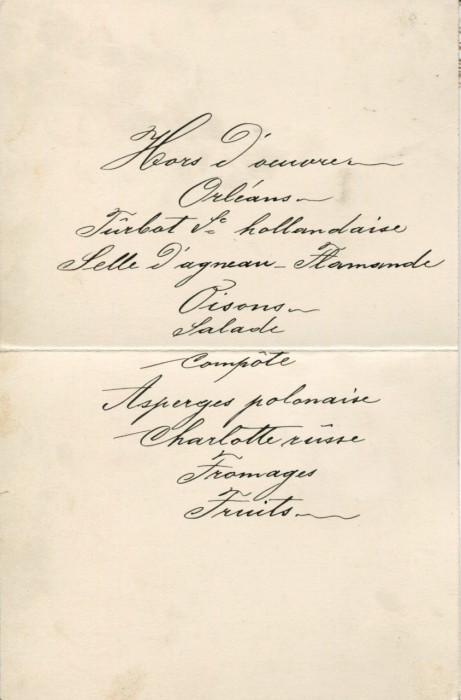 Hors d'oeuvres
Orléans
Tûrbot Sce hollandaise
Selle d'agneau - Flamande
Oisons
Salade
Compôte
Asperges polonaise
Charlotte rûsse
Fromages
Fruits